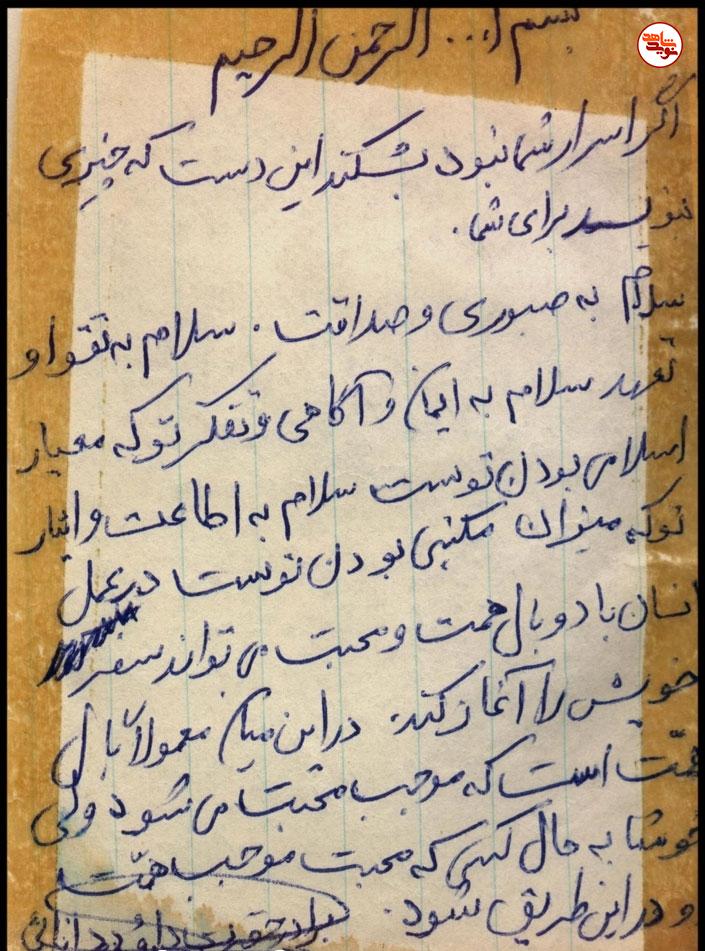 بسم ا... الرحمن الرحیم
نوید شاهد
اگر اسرار شما نبود بشکند این دست که چیزی
ننویسد برای شما.
سلام به صبوری و صداقت. سلام به تقوا و
تعهد سلام به ایمان و آگاهی و تفکر تو که معیار
اسلامی بودن توست سلام به اطاعت و ایثار
تو که میزان مکتبی بودن توست در عمل
انسان با دو بال همت و محبت می تواند سفر
خویش را آغاز کند. در این میان معمولاً بال
همّت است که موجب محبت می شود ولی
خوشا به حال کسی که محبت موجب همّت
و در این طریق شود. برادر حقیرت داود دانائی